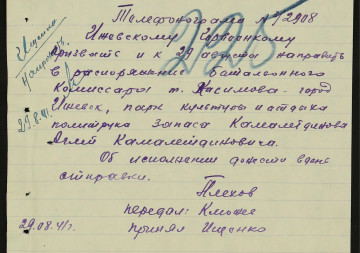 Телефонограмма № 2908
Ижевскому Горвоенкому
Призвать и к 29 августа направить
в распоряжение Батальонного
Комиссара т. Касимова - город
Ижевск, парк культуры и отдыха
политрука запаса Камалетдинова
Камалетдиновича.
Об исполнении донести в день
отправки.
Плехов
передал:
принял Ищенко
29.08.41 г.
Ищенко
29.8.41.